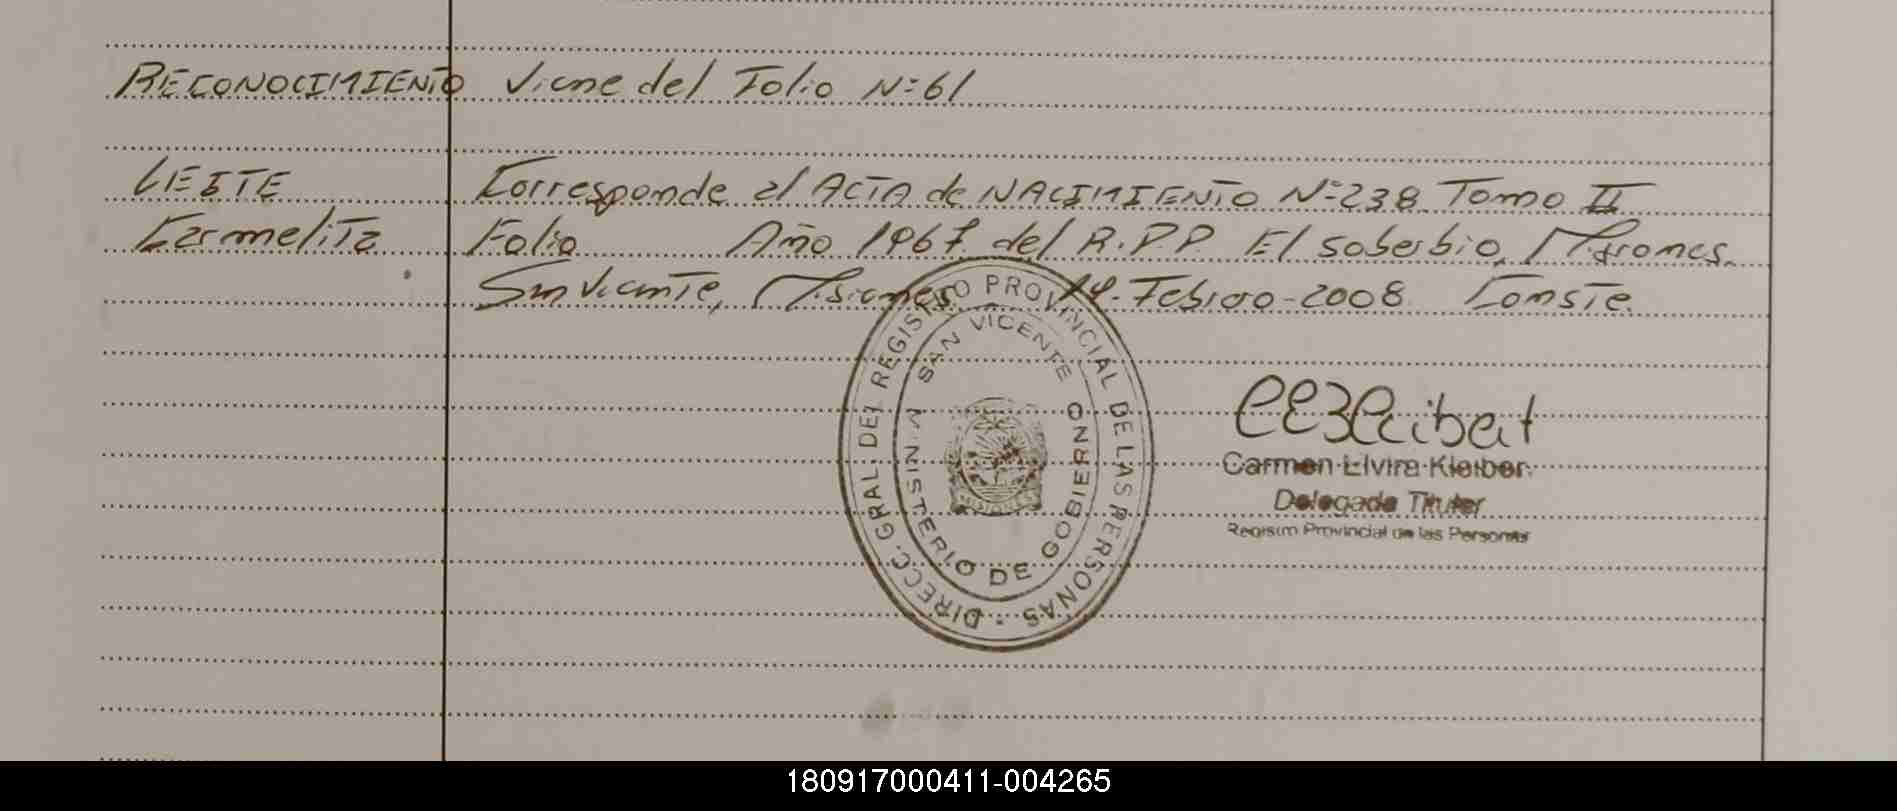 RECONOCIMIENTO Viene del Folio Nº 61
LEITE Corresponde al ACTA de NACIMIENTO Nº 238 Tomo II
Carmelita Folio Año 1967 del R.P.P. El soberbio, Misiones.
San Vicente, Misiones 14. Febrero-2008. Conste.
DIRECC. GRAL DEL REGISTRO PROVINCIAL DE LAS PERSONAS
SAN VICENTE
MINISTERIO DE GOBIERNO
MISIONES
Carmen Elvira Kleiber
Delegada Titular
Registro Provincial de las Personas
180917000411-004265